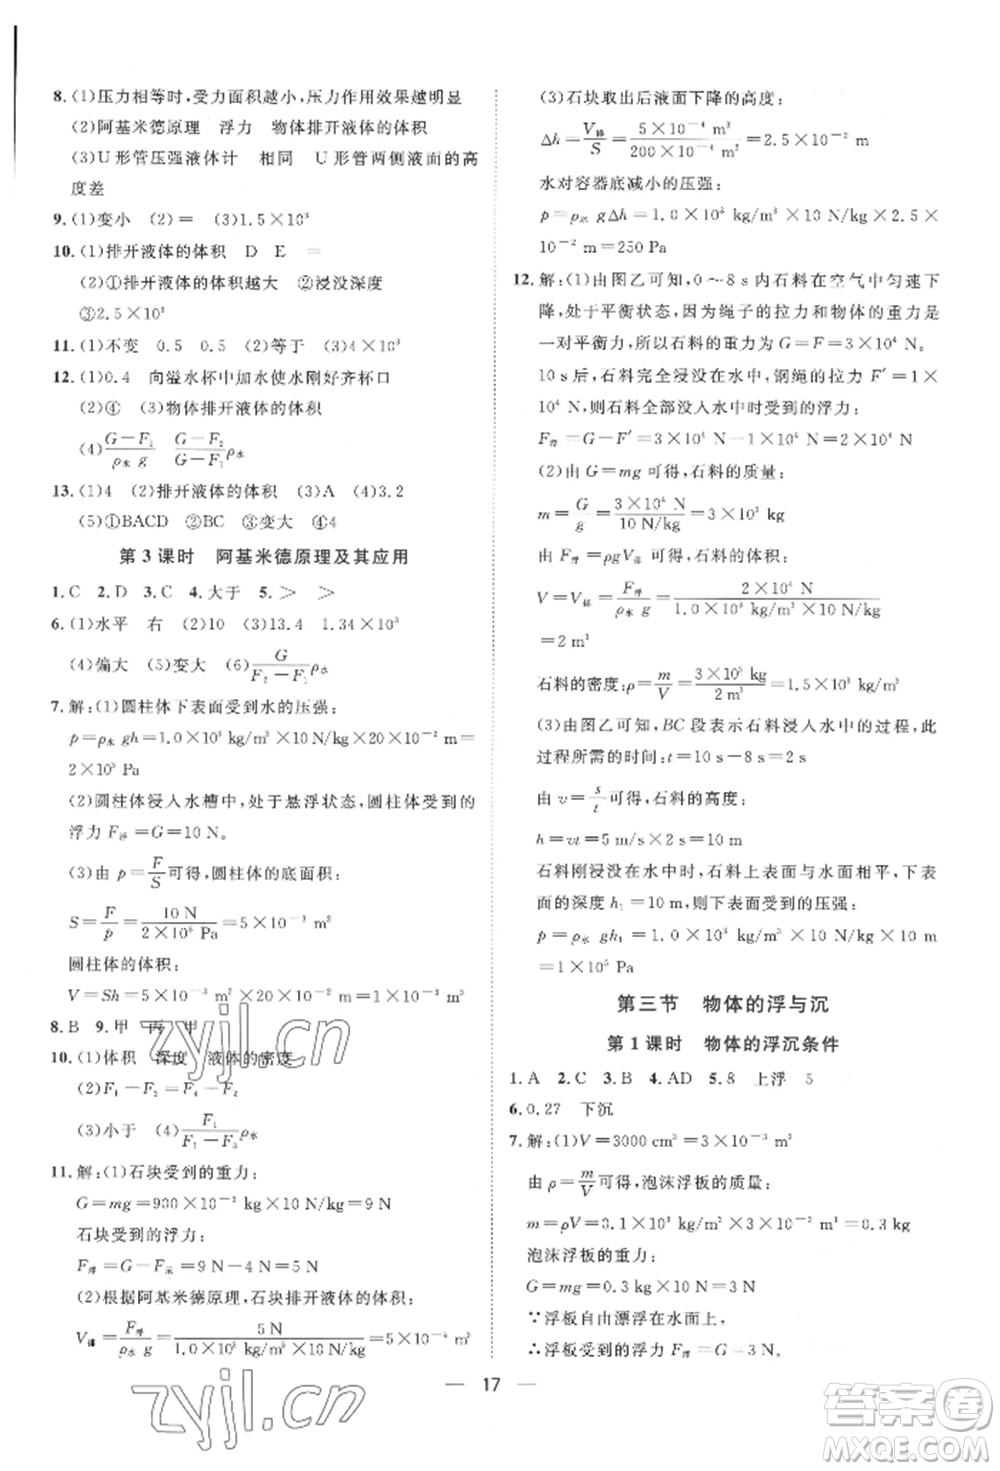 8.(1)压力相等时,受力面积越小,压力作用效果越明显
(2)阿基米德原理 浮力 物体排开液体的体积
(3)U形管压强液体计 相同 U形管两侧液面的高
度差
9.(1)变小 (2)= (3)1.5×10³
10.(1)排开液体的体积 D E =
(2)①排开液体的体积越大 ②浸没深度
③2.5×10³
11.(1)不变 0.5 0.5 (2)等于 (3)4×10³
12.(1)0.4 向溢水杯中加水使水刚好齐杯口
(2)④ (3)物体排开液体的体积
(4)(G-F₁)/(ρ水 g) (G-F₂)/(G-F₁)ρ水
13.(1)4 (2)排开液体的体积 (3)A (4)3.2
(5)①BACD ②BC ③变大 ④4
第3课时 阿基米德原理及其应用
1.C 2.D 3.C 4.大于 5.> >
6.(1)水平 右 (2)10 (3)13.4 1.34×10³
(4)偏大 (5)变大 (6)G/(F₂-F₁)ρ水
7.解:(1)圆柱体下表面受到水的压强:
p=ρ水 gh=1.0×10³ kg/m³×10 N/kg×20×10⁻² m=
2×10³ Pa
(2)圆柱体浸入水槽中,处于悬浮状态,圆柱体受到的
浮力F浮=G=10 N。
(3)由p=F/S可得,圆柱体的底面积:
S=F/p=10 N/(2×10³ Pa)=5×10⁻³ m²
圆柱体的体积:
V=Sh=5×10⁻³ m²×20×10⁻² m=1×10⁻³ m³
8.B 9.甲 丙 甲
10.(1)体积 深度 液体的密度
(2)F₁-F₂
(3)小于 F₁/(F₁-F₃)ρ水
11.解:(1)石块受到的重力:
G=mg=900×10⁻³ kg×10 N/kg=9 N
石块受到的浮力:
F浮=G-F=9 N-4 N=5 N
(2)根据阿基米德原理,石块排开液体的体积:
V排=F浮/(ρ水 g)=5 N/(1.0×10³ kg/m³×10 N/kg)=5×10⁻⁴ m³
(3)石块取出后液面下降的高度:
Δh=V排/S=(5×10⁻⁴ m³)/(200×10⁻⁴ m²)=2.5×10⁻² m
水对容器底减小的压强:
p=ρ水 gΔh=1.0×10³ kg/m³×10 N/kg×2.5×
10⁻² m=250 Pa
12.解:(1)由图乙可知,0~8 s内石料在空气中匀速下
降,处于平衡状态,因为绳子的拉力和物体的重力是
一对平衡力,所以石料的重力为G=F=3×10⁴ N。
10 s后,石料完全浸没在水中,钢绳的拉力F′=1×
10⁴ N,则石料全部没入水中时受到的浮力:
F浮=G-F′=3×10⁴ N-1×10⁴ N=2×10⁴ N
(2)由G=mg可得,石料的质量:
m=G/g=(3×10⁴ N)/(10 N/kg)=3×10³ kg
由F浮=ρgV排可得,石料的体积:
V=V排=F浮/(ρ水 g)=(2×10⁴ N)/(1.0×10³ kg/m³×10 N/kg)
=2 m³
石料的密度:ρ=m/V=(3×10³ kg)/(2 m³)=1.5×10³ kg/m³
(3)由图乙可知,BC段表示石料浸入水中的过程,此
过程所需的时间:t=10 s-8 s=2 s
由v=s/t可得,石料的高度:
h=vt=5 m/s×2 s=10 m
石料刚浸没在水中时,石料上表面与水面相平,下表
面的深度h₁=10 m,则下表面受到的压强:
p=ρ水 gh₁=1.0×10³ kg/m³×10 N/kg×10 m
=1×10⁵ Pa
第三节 物体的浮与沉
第1课时 物体的浮沉条件
1.A 2.C 3.B 4.AD 5.8 上浮 5
6.0.27 下沉
7.解:(1)V=3000 cm³=3×10⁻³ m³
由ρ=m/V可得,泡沫浮板的质量:
m=ρV=0.1×10³ kg/m³×3×10⁻³ m³=0.3 kg
泡沫浮板的重力:
G=mg=0.3 kg×10 N/kg=3 N
∵浮板自由漂浮在水面上,
∴浮板受到的浮力F浮=G=3 N
— 17 —
zyjl.cn
zyjl.cn
答案圈
MXQE.COM